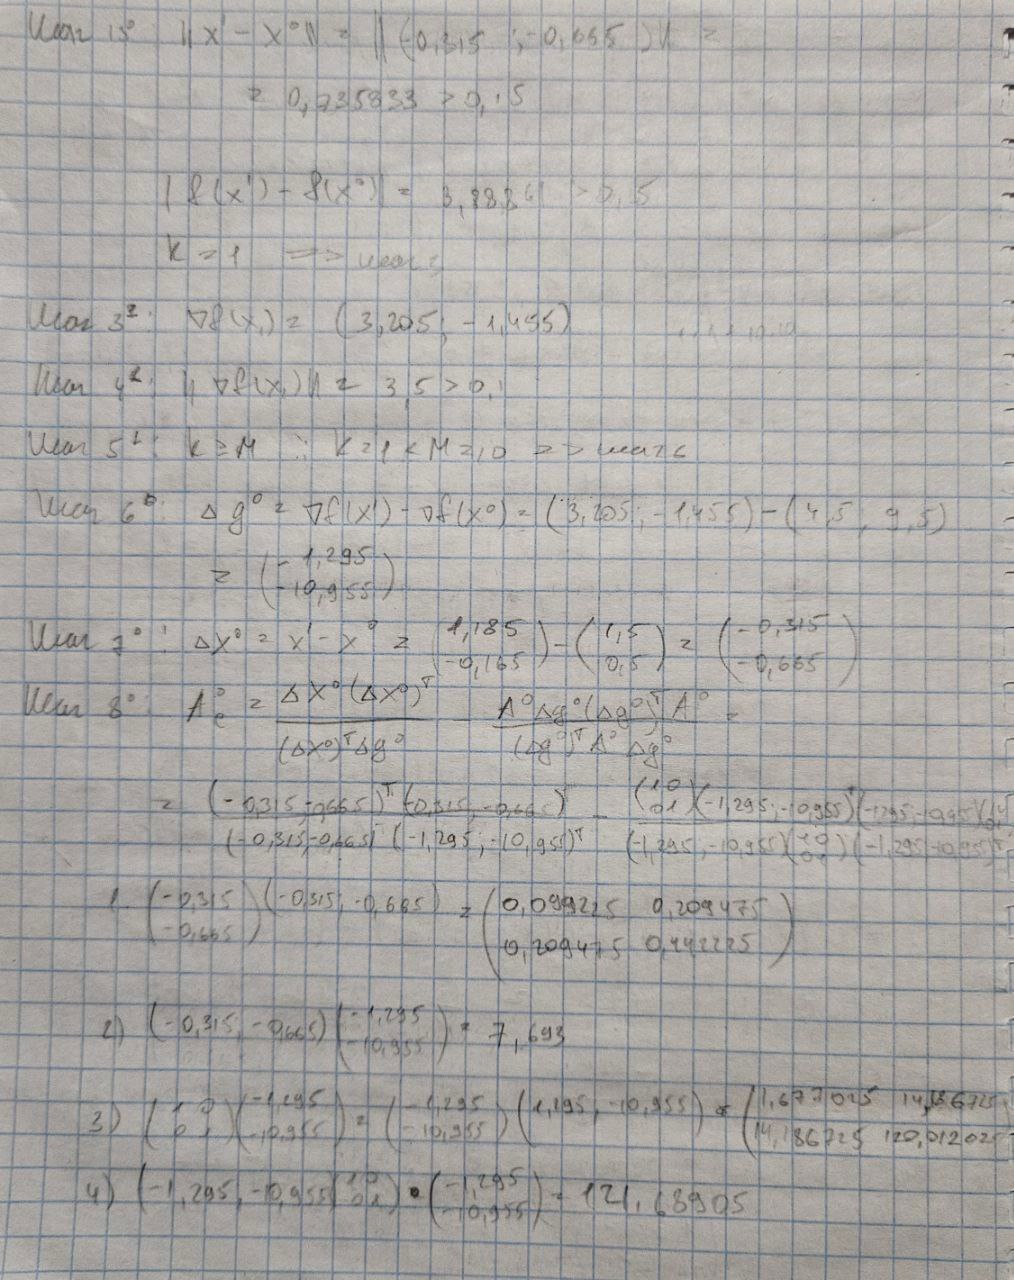 Шаг 13⁰ ||x¹ - x⁰|| = ||(-0,315 ; -0,665)|| =
= 0,735833 > 0,15
|f(x¹) - f(x⁰)| = > 0,15
k = 1 => шаг 3
Шаг 3¹: ∇f(x₁) = (3,205; -1,455)
Шаг 4¹: ||∇f(x₁)|| = 3,5 > 0,1
Шаг 5¹: k ≥ M : k=1 < M=10 => шаг 6
Шаг 6⁰: Δg⁰ = ∇f(x¹) - ∇f(x⁰) = (3,205; -1,455) - (4,5, 9,5)
= (-1,295 -10,955)
Шаг 7⁰: Δx⁰ = x¹ - x⁰ = (1,185 -0,165) - (1,5 0,5) = (-0,315 -0,665)
Шаг 8⁰: A⁰c = Δx⁰(Δx⁰)ᵀ / (Δx⁰)ᵀΔg⁰ - A⁰Δg⁰(Δg⁰)ᵀA⁰ / (Δg⁰)ᵀA⁰Δg⁰ =
= (-0,315;-0,665)ᵀ(-0,315;-0,665)ᵀ / (-0,315;-0,665)(-1,295;-10,955)ᵀ - (1 0 0 1)(-1,295;-10,955)ᵀ(-1,295;-10,955) / (-1,295;-10,955)(1 0 0 1)(-1,295;-10,955)ᵀ
1. (-0,315 -0,665)(-0,315; -0,665) = (0,099225 0,209475 0,209475 0,442225)
2) (-0,315; -0,665)(-1,295 -10,955) = 7,693
3) (1 0 0 1)(-1,295 -10,955) = (-1,295 -10,955)(1,295; -10,955) = (1,677025 14,186725 14,186725 120,012025)
4) (-1,295; -10,955(1 0 0 1) • (-1,295 -10,955) = 121,68905